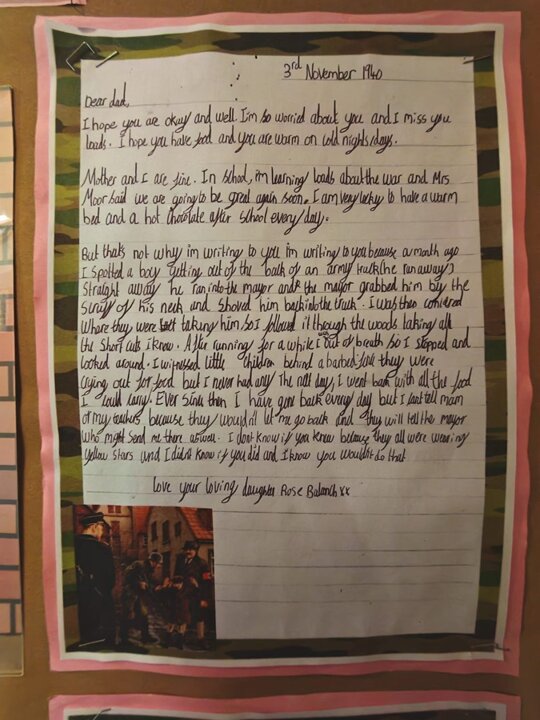 3rd November 1940
Dear dad,
I hope you are okay and well. I'm so worried about you and I miss you
loads. I hope you have food and you are warm on cold nights/days.
Mother and I are fine. In school, im learning loads about the war and Mrs
Moor said we are going to be great again soon. I am very lucky to have a warm
bed and a hot chocolate after school every day.
But thats not why im writing to you im writing to you because a month ago
I spotted a boy getting out of the back of an army truck (he ran away)
Straight away he ran into the mayor and the mayor grabbed him by the
scruff of his neck and shoved him back into the truck. I was then
where they were taking him so I followed it through the woods taking all
the short cuts i knew. After running for a while I out of breath so I stopped and
looked around. I witnessed little children behind a barbed they were
crying out for food but I never had any The next day, I went back with all the food
I could carry. Ever since then I have gone back every day but I cant tell mam
or my teachers because they wouldn't let me go back and they will tell the mayor
who might send me there aswell. I dont know if you knew because they all were wearing
yellow stars and I didn't know if you did and I know you wouldnt do that
Love your loving daughter Rose Balanch xx